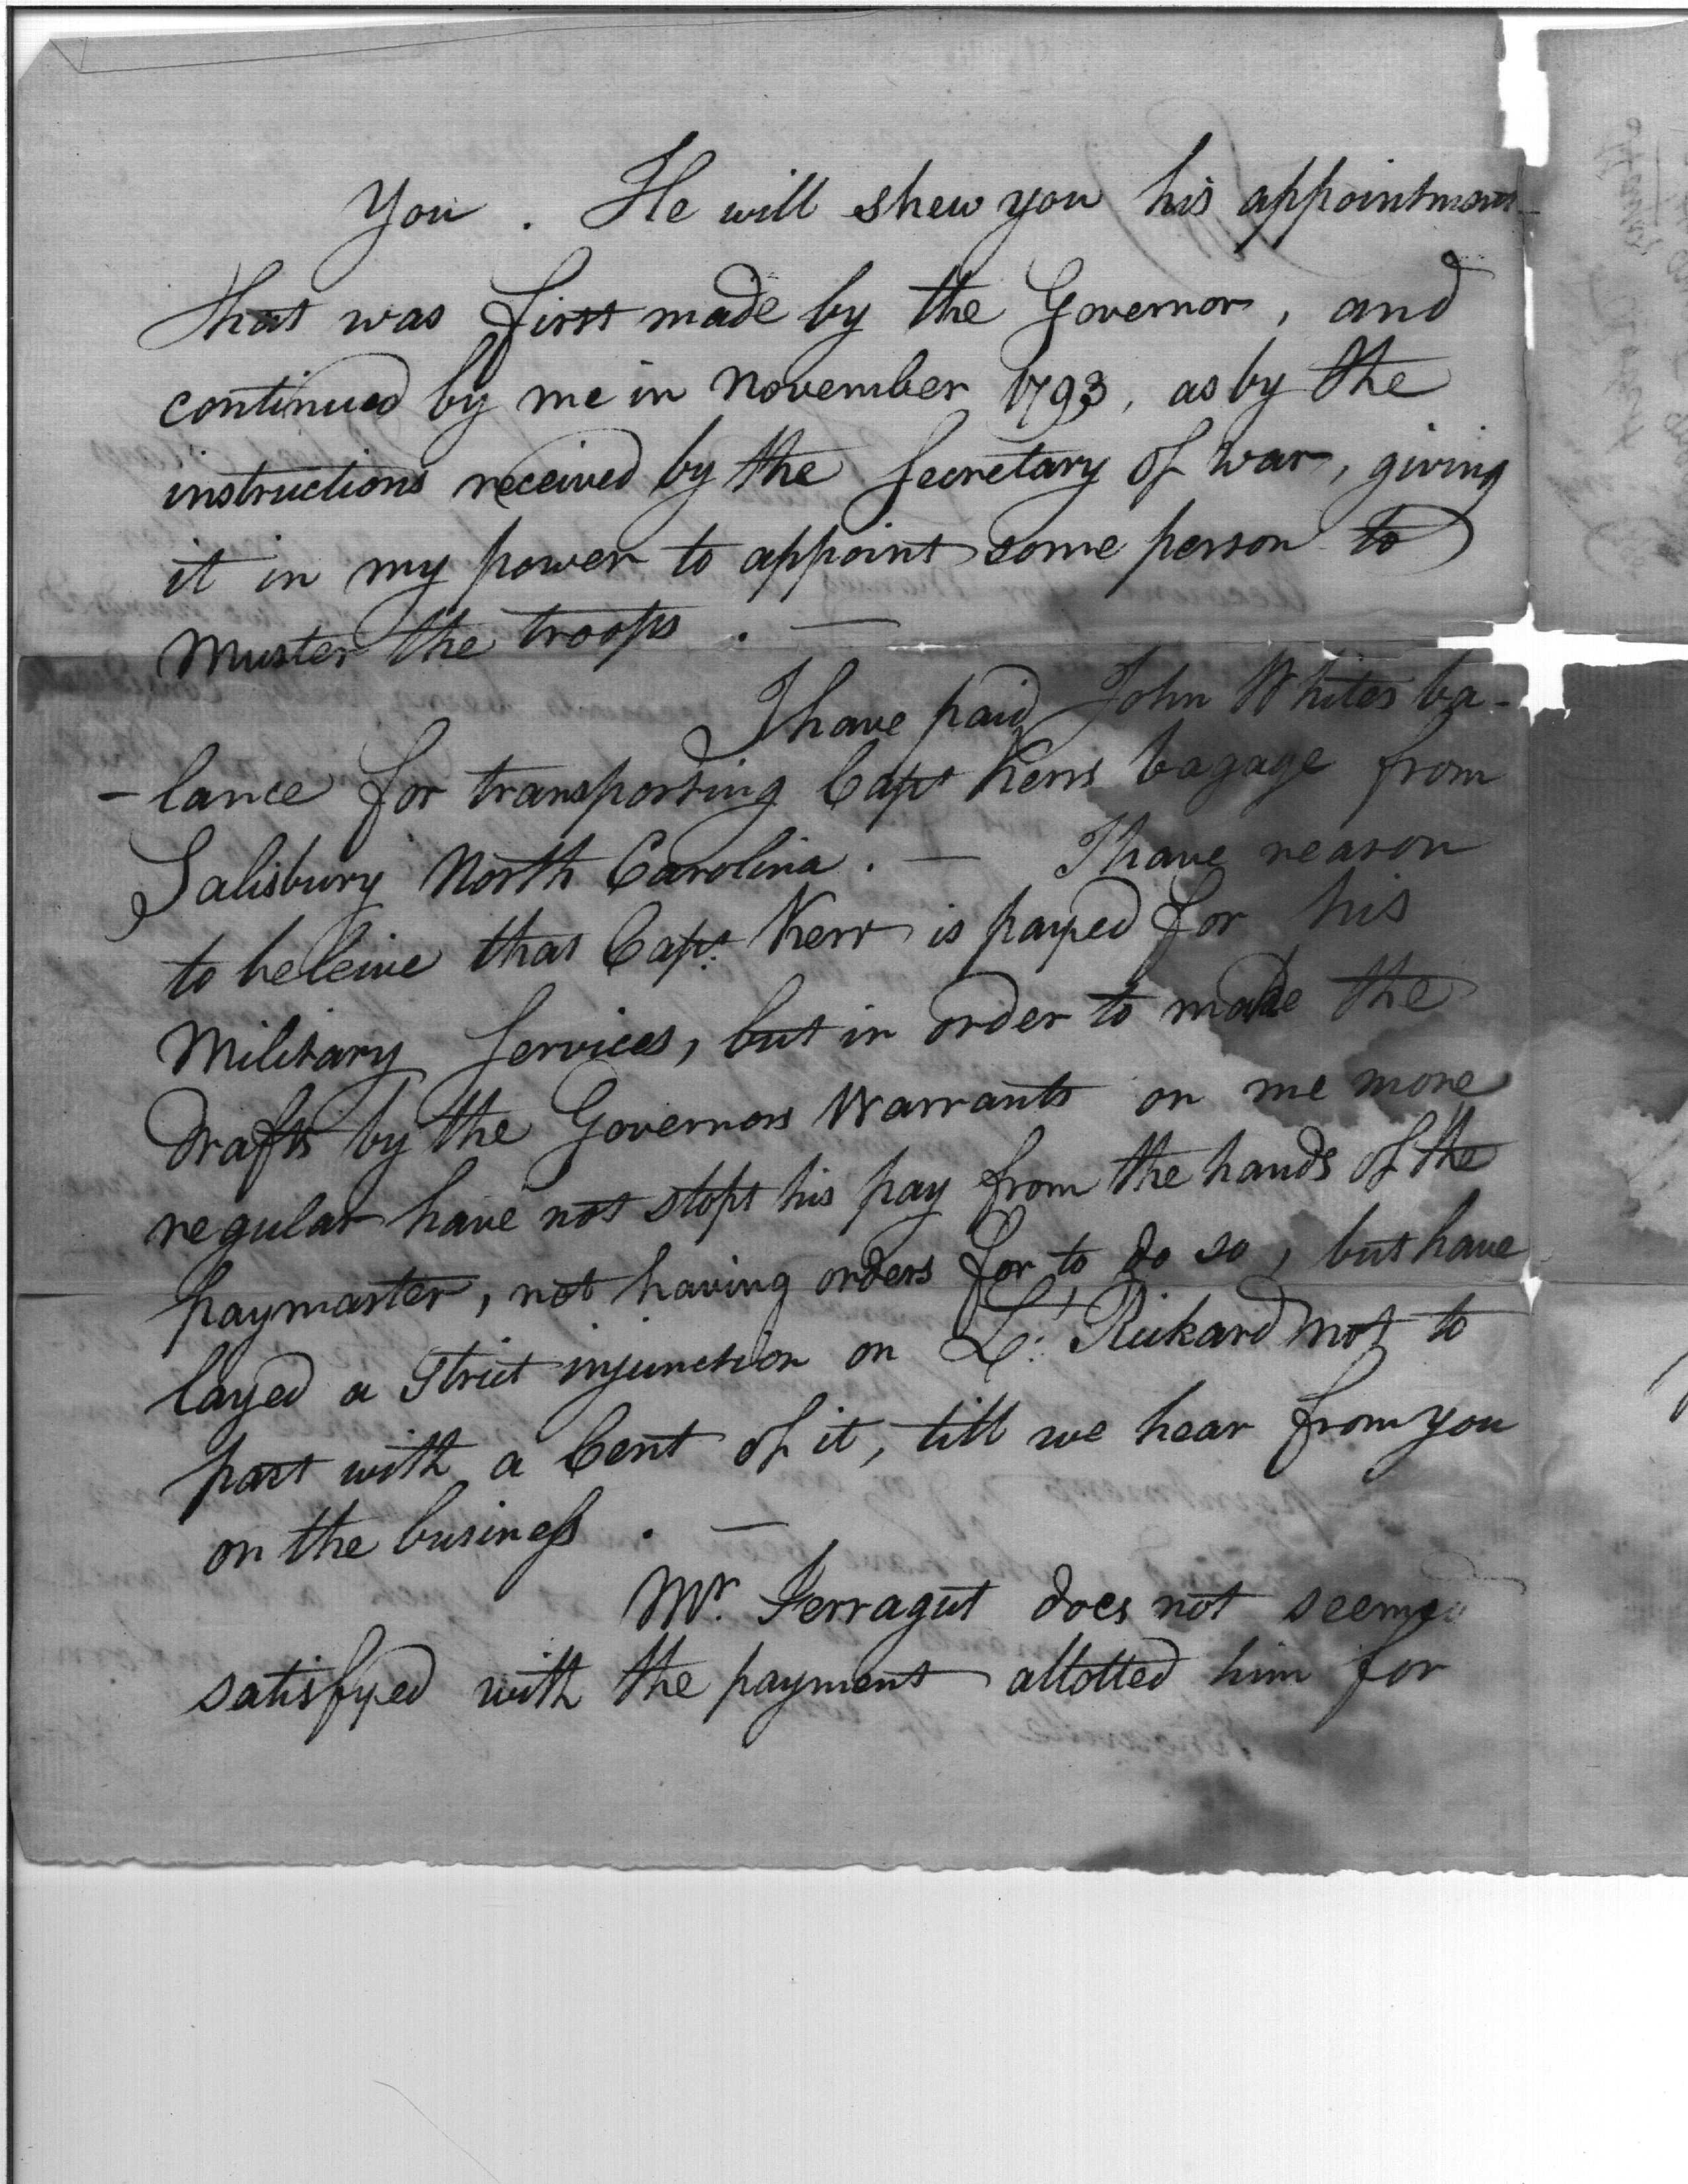 You . He will shew you his appointment
that was first made by the Governor, and
continued by me in November 1793, as by the
instructions received by the Secretary of war, giving
it in my power to appoint some person to
Muster the troops . —
I have paid John Whites ba-
-lance for transporting Capt Kerrs bagage from
Salisbury North Carolina . — I have reason
to beleive that Capt. Kerr is payed for his
Military Services, but in order to make the
Drafts by the Governors Warrants on me more
regular have not stopt his pay from the hands of the
paymaster, not having orders for to do so, but have
layed a Strict injunction on Lt. Rickard not to
part with a Cent of it, till we hear from you
on the business . —
Mr. Ferragut does not seem
satisfyed with the payment allotted him for